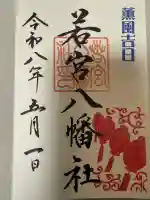 薫風吉日
若宮八幡社
令和八年五月一日